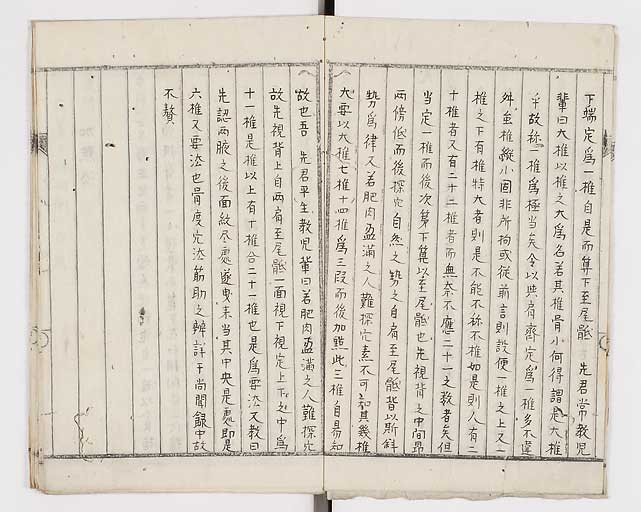 下端定爲一椎自是而算下至尾骶 先君常教児
輩曰大椎以椎之大爲名若其椎骨小何得謂是大椎
乎故称一椎爲極当矣今以與肩齊定爲一椎多不違
舛並椎縱小固非所拘或従前言則設使一椎之上又一
椎之下有椎特大者則是不能不称不椎如是則人有二
十椎者又有二十二椎者而無奈不應二十一之数者矣但
当定一椎而後次第下算以至尾骶也先視背之中間昂
両傍低而後探穴自然之勢之自肩至尾骶皆以斯斜
勢爲律又若肥肉盈滿之人難探穴素不可知其幾椎
大要以大椎七椎十四椎爲三段而後加點此三椎自易知
故也吾 先君平生教児輩曰若肥肉盈滿之人難探穴
故先視背上自両肩至尾骶一面視下視定上下之中爲
十一椎是椎以上有十椎合二十一椎也是爲要法又教曰
先認両腋之後面紋尽處遂曳末当其中央是處即是
六椎又要法也骨度穴法筋助之辨詳于尚聞録中故
不贅